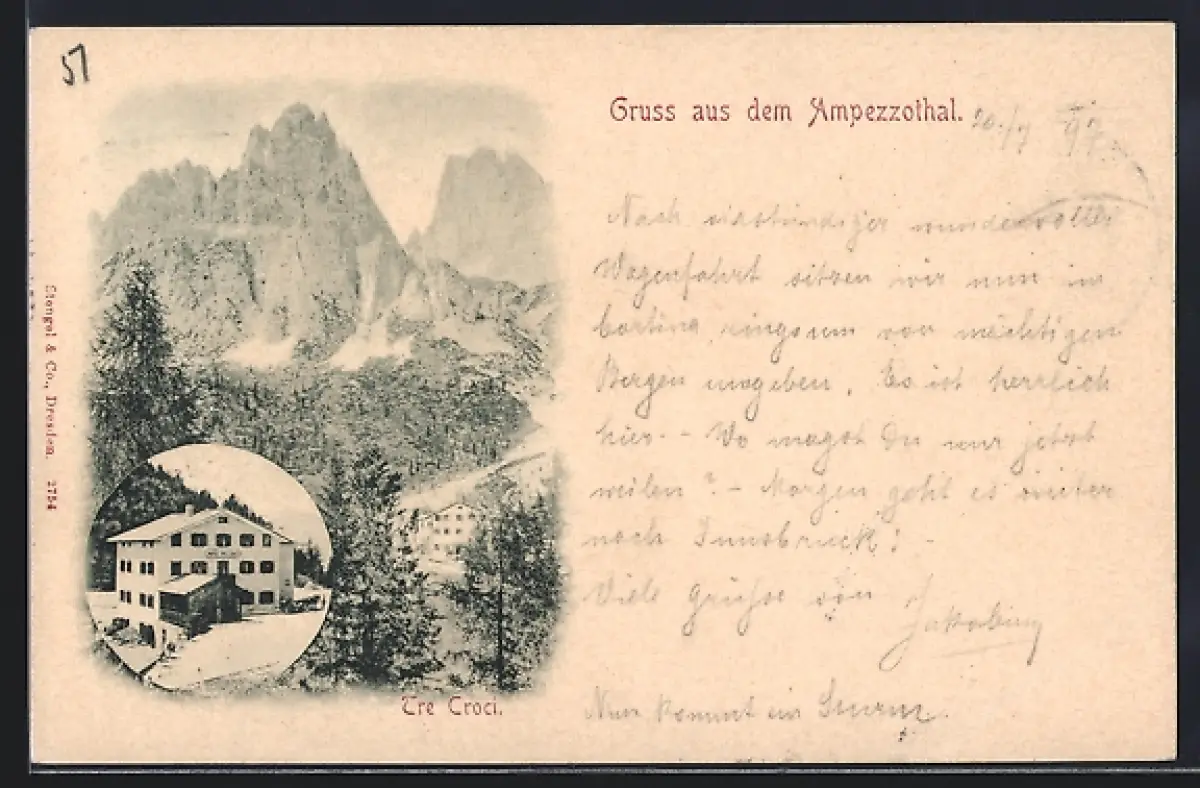 57
Gruss aus dem Ampezzothal.
20./7 97.
Nach wundervoller
Wagenfahrt sitzen wir nun in
Cortina, ringsum von mächtigen
Bergen umgeben. Es ist herrlich
hier. - Wo magst Du nur jetzt
weilen? - Morgen geht es weiter
nach Innsbruck! -
Viele Grüsse von
Nun kommt ein Sturm.
Tre Croci.
Stengel & Co., Dresden. 2754